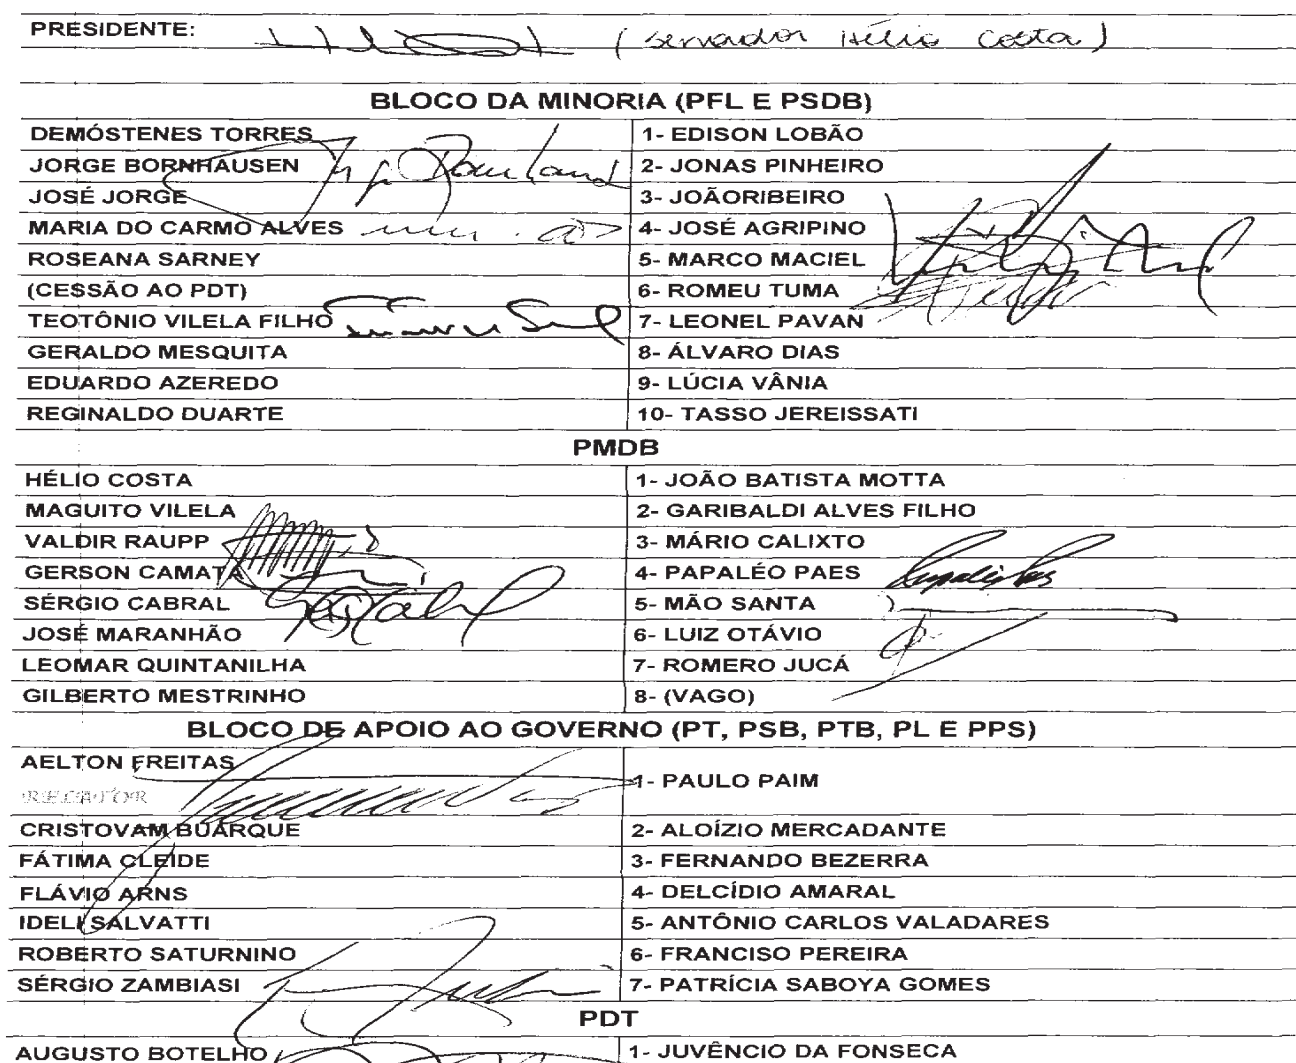 PRESIDENTE: (senador Hélio Costa)
BLOCO DA MINORIA (PFL E PSDB)
DEMÓSTENES TORRES 1- EDISON LOBÃO
JORGE BORNHAUSEN 2- JONAS PINHEIRO
JOSÉ JORGE 3- JOÃORIBEIRO
MARIA DO CARMO ALVES 4- JOSÉ AGRIPINO
ROSEANA SARNEY 5- MARCO MACIEL
(CESSÃO AO PDT) 6- ROMEU TUMA
TEOTÔNIO VILELA FILHO 7- LEONEL PAVAN
GERALDO MESQUITA 8- ÁLVARO DIAS
EDUARDO AZEREDO 9- LÚCIA VÂNIA
REGINALDO DUARTE 10- TASSO JEREISSATI
PMDB
HÉLIO COSTA 1- JOÃO BATISTA MOTTA
MAGUITO VILELA 2- GARIBALDI ALVES FILHO
VALDIR RAUPP 3- MÁRIO CALIXTO
GERSON CAMATA 4- PAPALÉO PAES
SÉRGIO CABRAL 5- MÃO SANTA
JOSÉ MARANHÃO 6- LUIZ OTÁVIO
LEOMAR QUINTANILHA 7- ROMERO JUCÁ
GILBERTO MESTRINHO 8- (VAGO)
BLOCO DE APOIO AO GOVERNO (PT, PSB, PTB, PL E PPS)
AELTON FREITAS 1- PAULO PAIM
RELATOR
CRISTOVAM BUARQUE 2- ALOÍZIO MERCADANTE
FÁTIMA CLEIDE 3- FERNANDO BEZERRA
FLÁVIO ARNS 4- DELCÍDIO AMARAL
IDELI SALVATTI 5- ANTÔNIO CARLOS VALADARES
ROBERTO SATURNINO 6- FRANCISO PEREIRA
SÉRGIO ZAMBIASI 7- PATRÍCIA SABOYA GOMES
PDT
AUGUSTO BOTELHO 1- JUVÊNCIO DA FONSECA